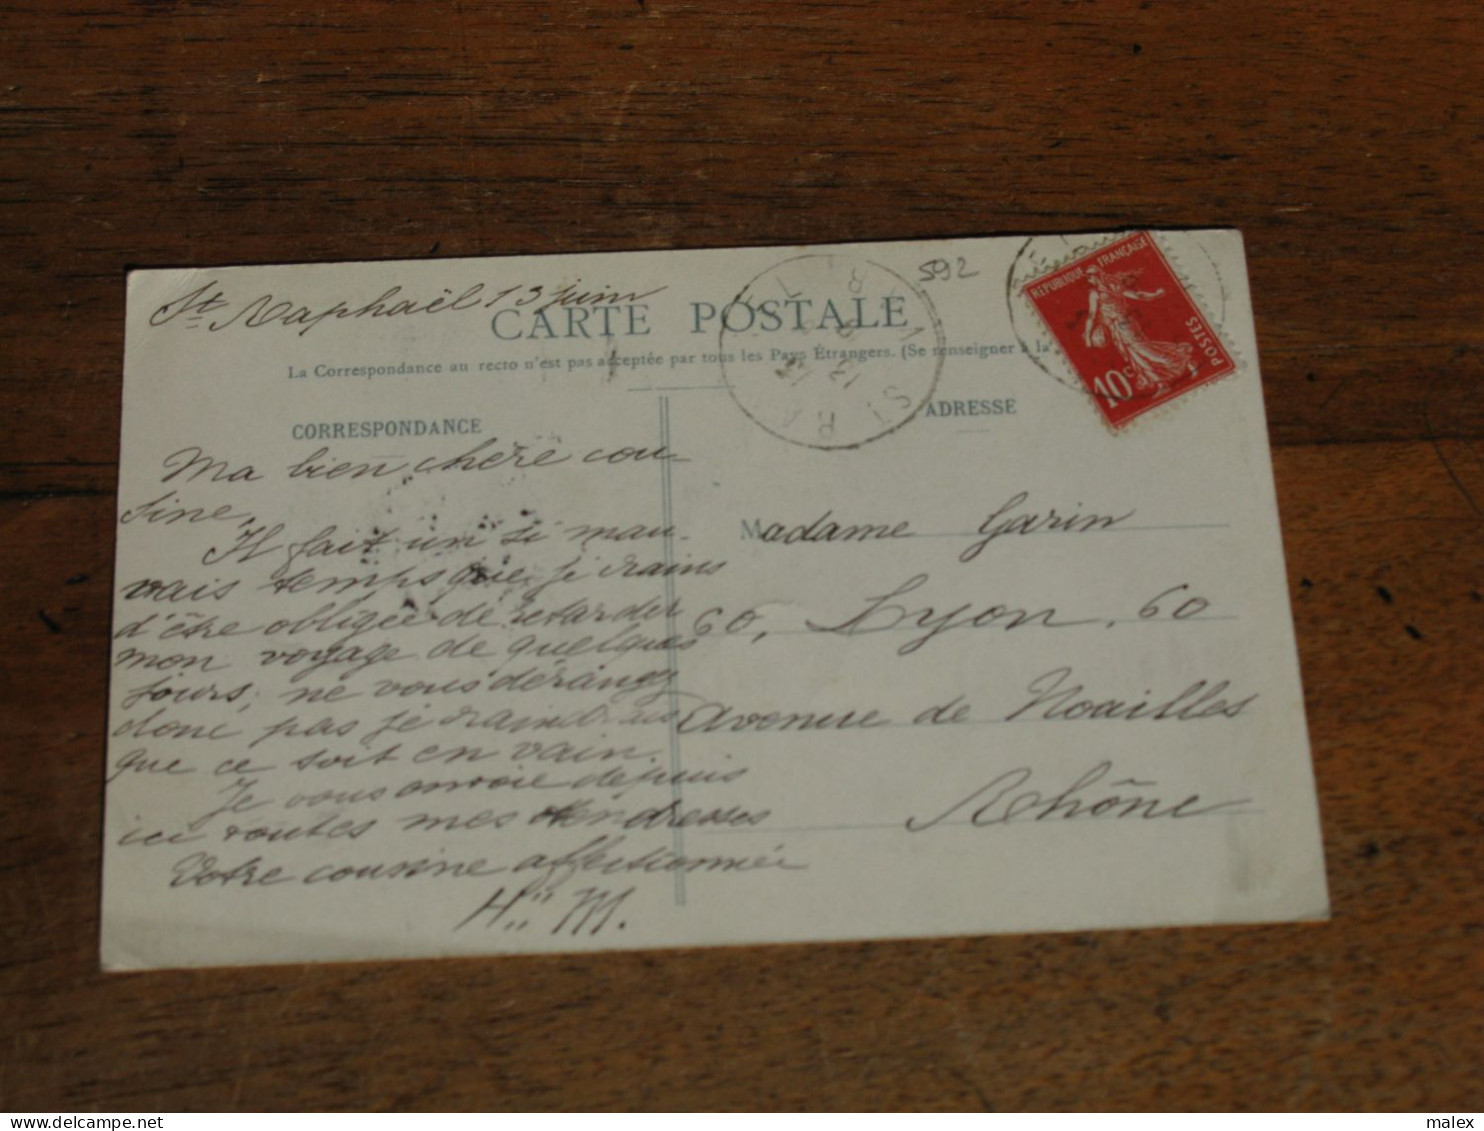 St Raphaël 13 juin
592
CARTE POSTALE
La Correspondance au recto n'est pas acceptée par tous les Pays Étrangers. (Se renseigner à la
RÉPUBLIQUE FRANÇAISE
POSTES
10c
CORRESPONDANCE
ADRESSE
Ma bien chère cou-
sine,
Il fait un si mau-
vais temps que je crains
d'être obligée de retarder
mon voyage de quelques
jours, ne vous dérangez
donc pas je craindrais
que ce soit en vain.
Je vous envoie depuis
ici toutes mes tendresses
Votre cousine affectionnée
H. M.
Madame Garin
60, Lyon, 60
Avenue de Noailles
Rhône
malex